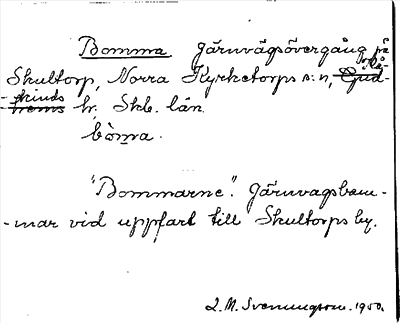 Bomma järnvägsövergång på
Skultorp, Norra Kyrketorps s:n, Gud-
-hems hr. Skb. län.
bòm̄a.
"Bommarne". Järnvagsbom-
-mar vid uppfart till Skultorps by.
L. M. Svenungsson. 1950.